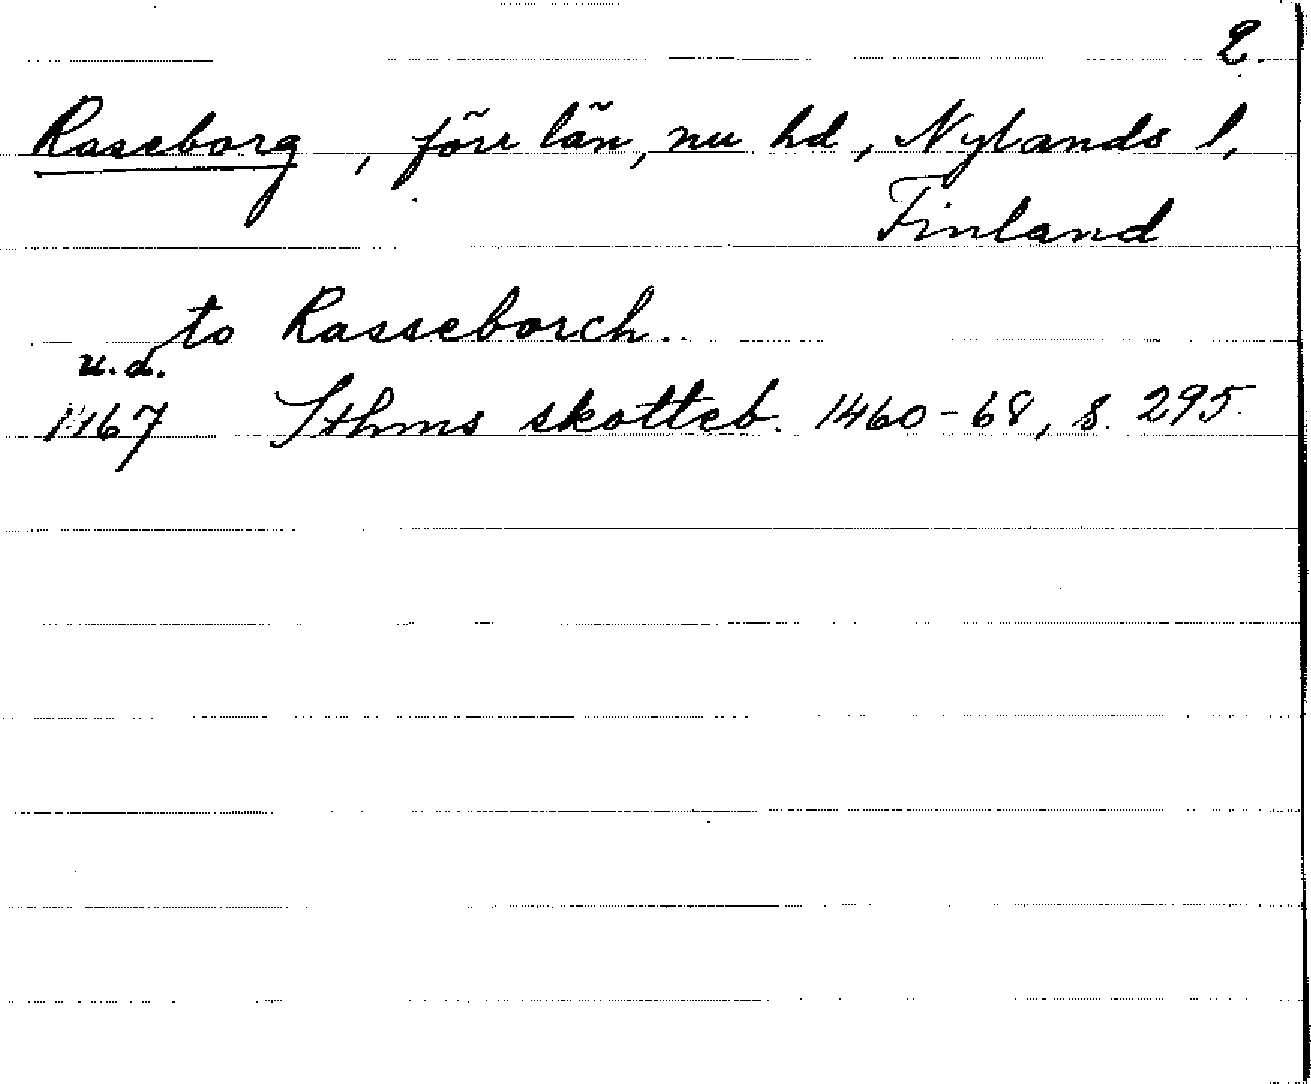 2.
Raseborg, förr län, nu hd, Nylands l,
Finland
to Rasseborch.
u.d.
1467 Sthms skotteb. 1460-68, s. 295.